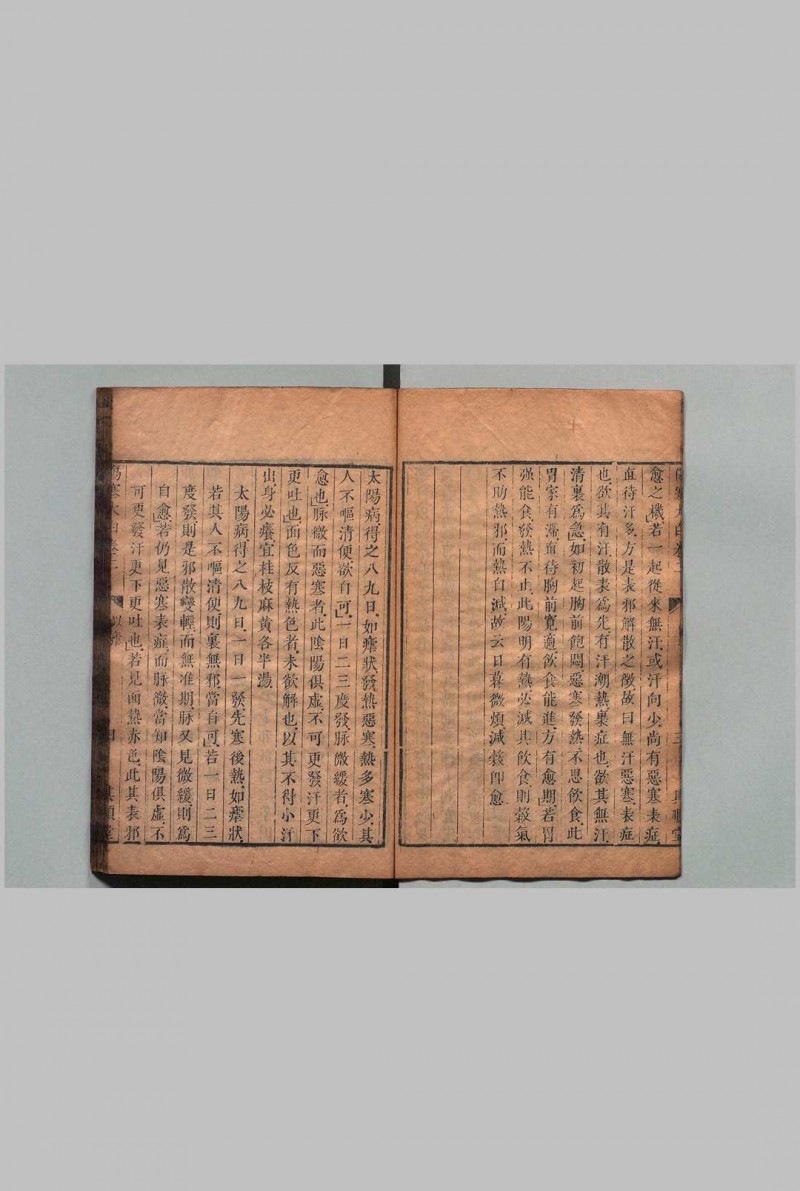 愈之機若一起從來無汗或汗向少尚有惡寒表症
直待汗多方是表邪解散之徵故曰無汗惡寒表症
也欲其有汗散表為先有汗潮熱裏症也欲其無汗
清裏為急如初起胸前飽悶惡寒發熱不思飲食此
胃家有滯直待胸前寬適飲食能進方有愈期若胃
强能食發熱不止此陽明有熱必減其飲食則穀氣
不助熱邪而熱自減故云日暮微煩減穀即愈
太陽病得之八九日如瘧狀發熱惡寒熱多寒少其
人不嘔清便欲自可一日二三度發脉微緩者為欲
愈也脉微而惡寒者此陰陽俱虛不可更發汗更下
更吐也面色反有熱色者未欲解也以其不得小汗
出身必癢宜桂枝麻黃各半湯
太陽病得之八九日一日一發先寒後熱如瘧狀
若其人不嘔清便則裏無邪當自可若一日二三
度發則是邪散變輕而無准期脉又見微緩則為
自愈若仍見惡寒表症而脉微當知陰陽俱虛不
可更發汗更下更吐也若見面熱赤色此其表邪
傷寒大白卷二
四
其順堂